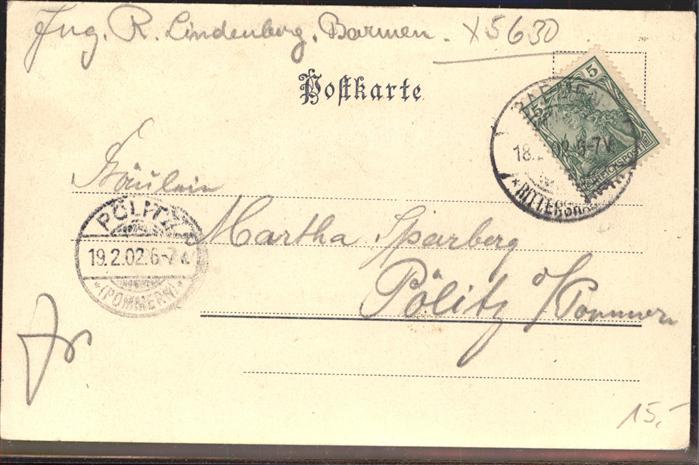 Ing. R. Lindenberg. Barmen. X5630
Postkarte
5
BARMEN
18.2.02.6-7V.
*RITTERSHA
Fräulein
PÖLITZ
19.2.02.6-7V.
*(POMMERN)*
Martha Sparberg
Pölitz o/ Pommern
Fr
15,-